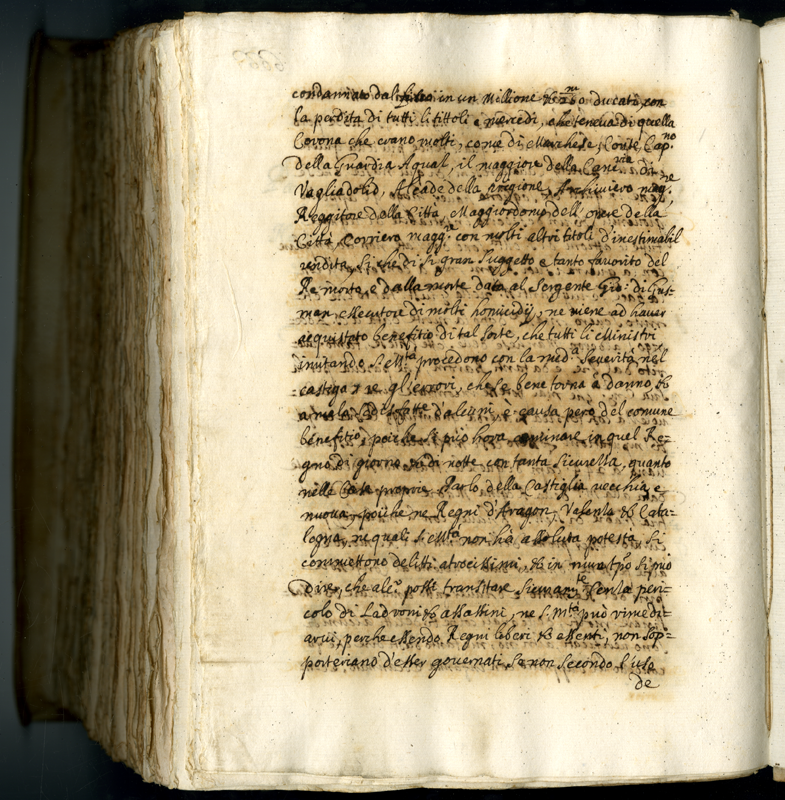 condannato dal fisco in un Millione & 200 ducati, con
la perdita di tutti li tittoli e mercedi, che teneua di quella
Corona che erano molti, come di Marchese, Conte, Cap.no
della Guardia il maggiore della di
Vagliadolid, Alcade della prigione, Archiuiero mag.re,
Reggitore della Citta, Maggiordomo dell' opere della
Città, Corriero magg.re con molti altri titoli d'inestimabil
rendita, Si che di si gran Suggetto e tanto fauorito del
Re morto, e dalla morte data al Sergente Gio: di Gus=
man, essecutore di molti homicidij, ne viene ad hauer
acquistato benefitio di tal sorte, che tutti li Ministri
imitando S. M.tà procedono con la med.a Seuerità nel
castigare gl'errori, che se bene torna à danno, &
à mala d'alcuni, è causa però del comune
benefitio, poiche si può hora caminare in quel Re=
gno di giorno e di notte con tanta Sicurezza, quanto
nelle Case proprie. Parlo della Castiglia vecchia, e
nuoua, poiche ne Regni d'Aragon, Valenza & Cata=
logna, ne quali S. M.tà non hà assoluta potestà, Si
commettono delitti atrocissimi, & in niun tpo si può
dire, che alc.o possi transitare Sicuram.te Senza peri=
colo di Ladroni & assassini, ne S. M.tà può rimedi=
arui, perche essendo Regni liberi & essenti, non sop=
porteriano d'esser gouernati Se non Secondo l'uso
de